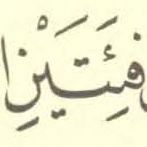 فِئَتَيْنِ ا